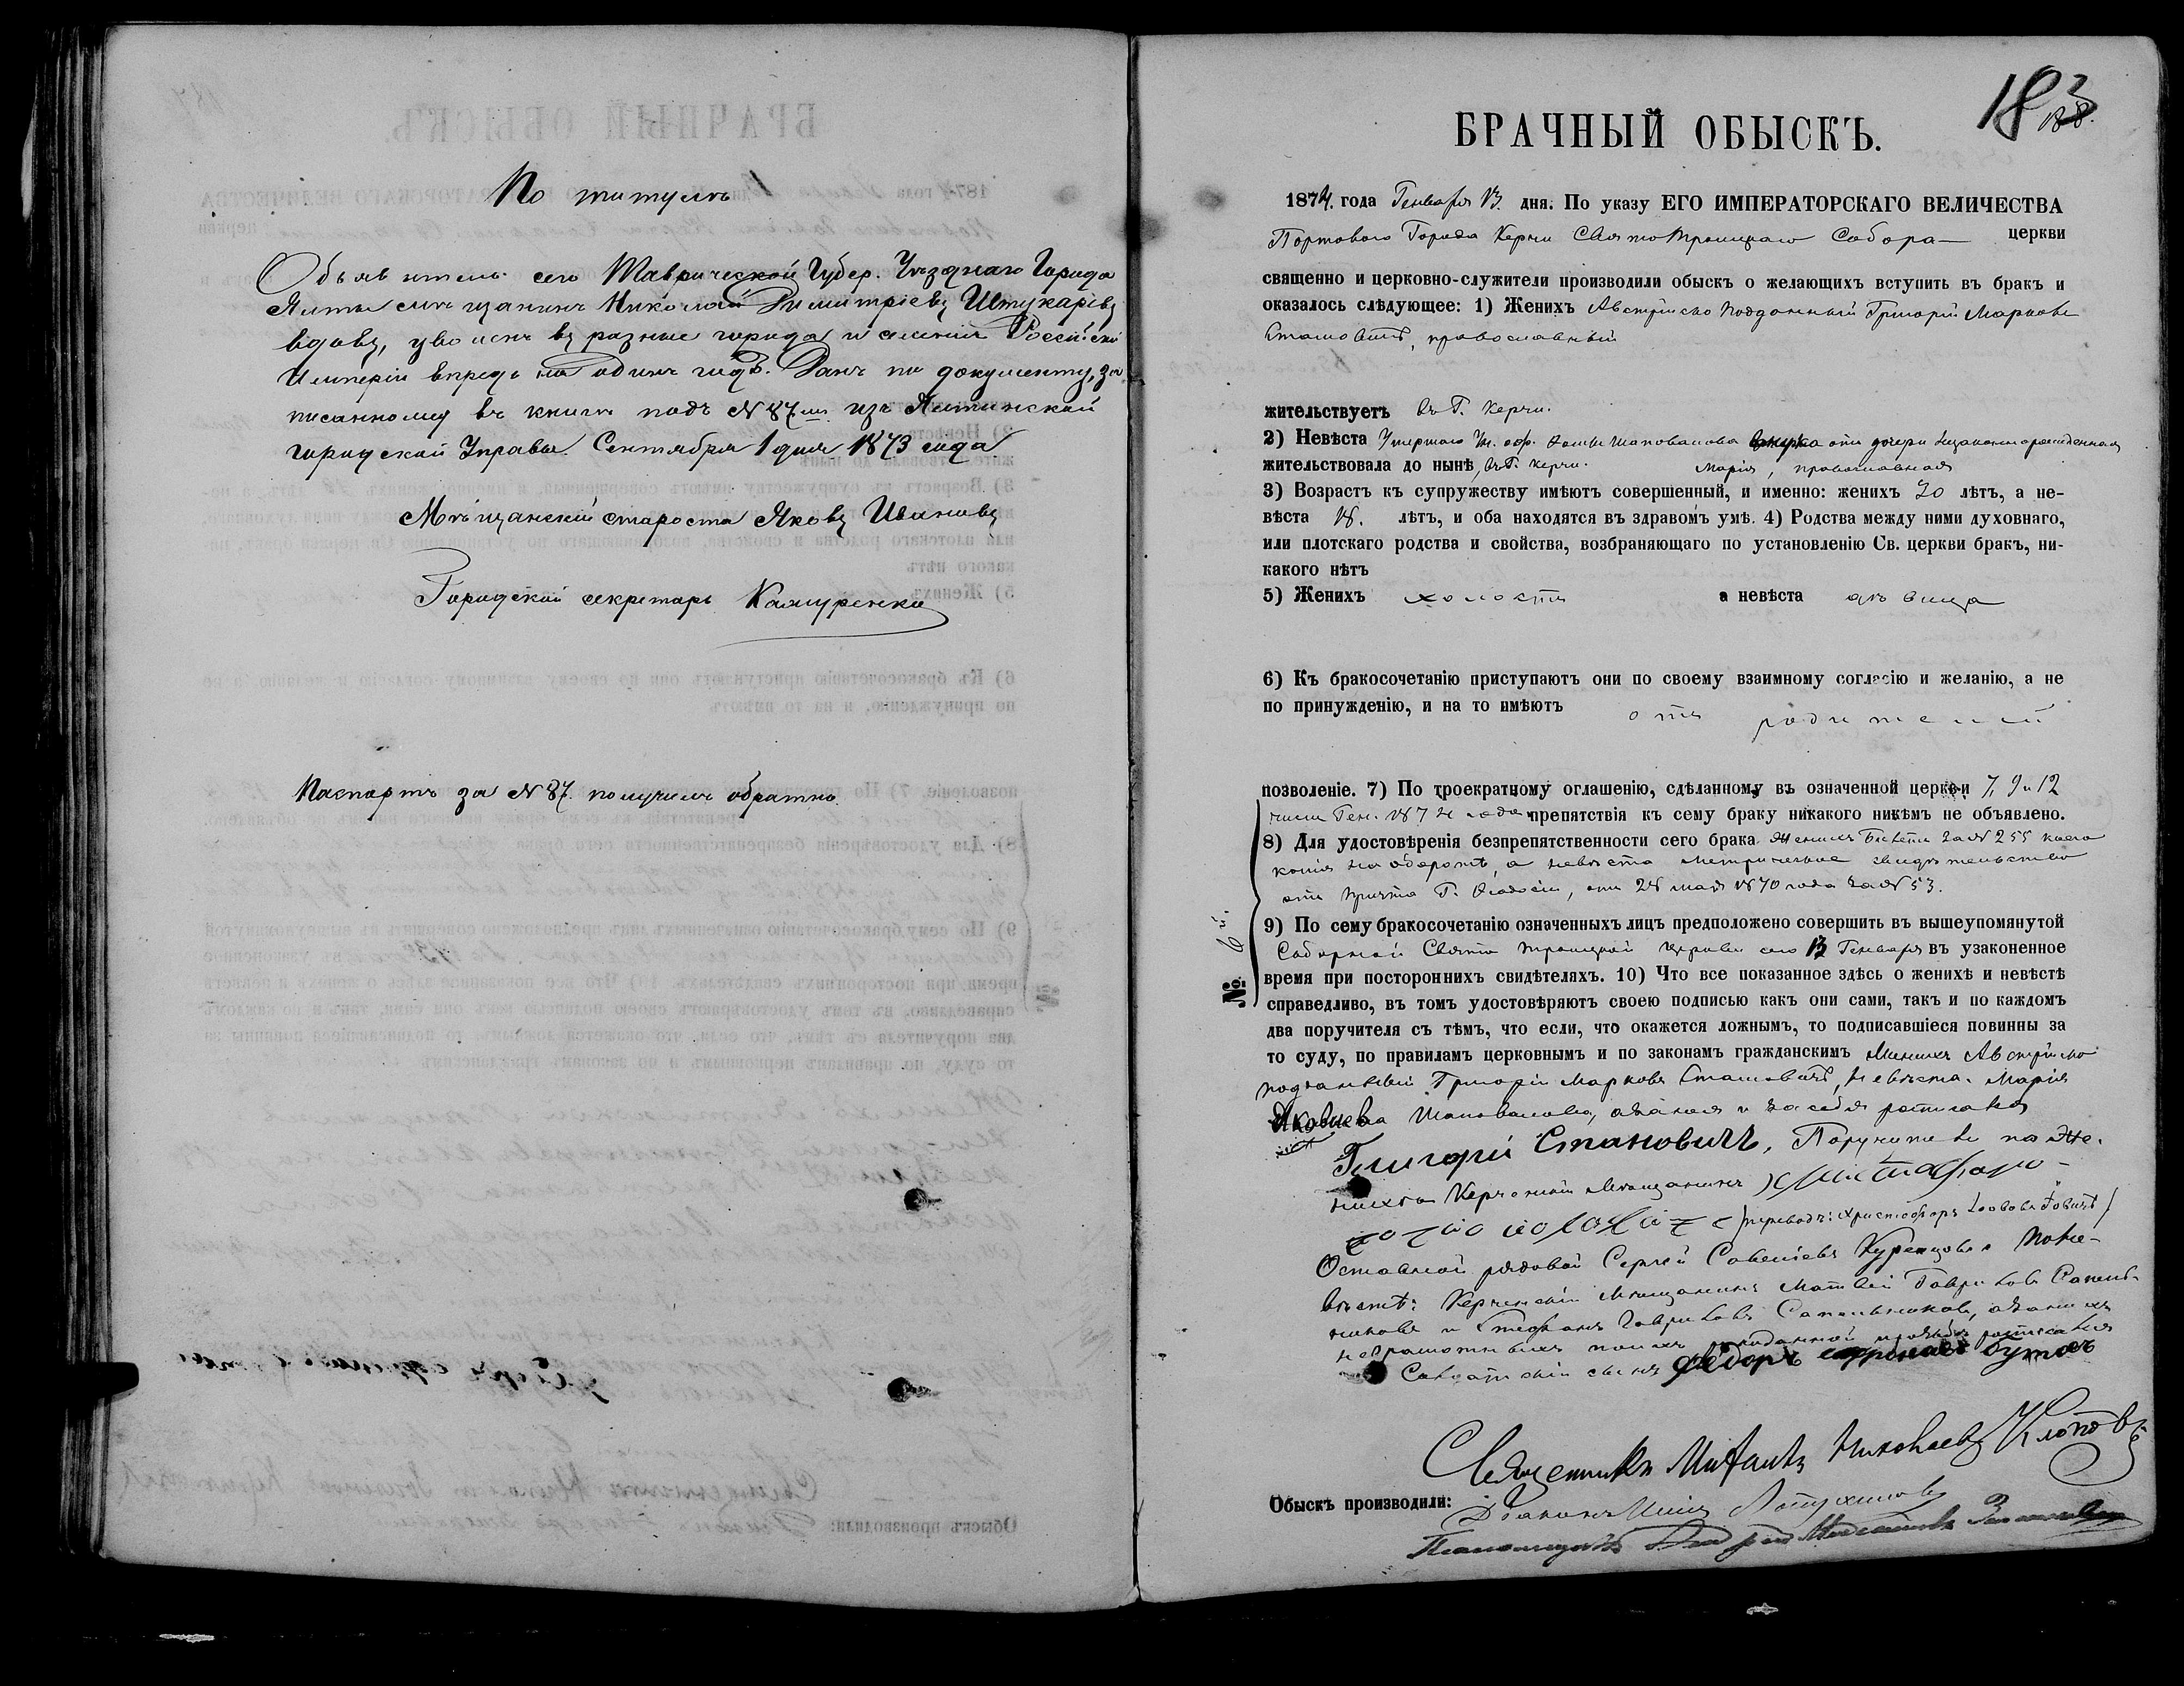 По титулѣ
Объявитель сего Таврической Губер. Уѣзднаго Города
Ялты мѣщанинъ Николай Димитріевъ Штукаріовъ
вдовъ, уволенъ въ разные города и селенія Россійской
Имперіи впредь на одинъ годъ. Данъ по документу, за
писанному въ книгѣ подъ № 87 изъ Ялтинской
городской Управы Сентября 1 дня 1873 года
Мѣщанскій староста Яковъ Ивановъ
Городской секретарь
Паспортъ за № 87. получилъ обратно
183
188.
БРАЧНЫЙ ОБЫСКЪ.
1874. года Генваря 13. дня. По указу ЕГО ИМПЕРАТОРСКАГО ВЕЛИЧЕСТВА
Портоваго Города Керчи СвятоТроицкаго Собора церкви
священно и церковно-служители производили обыскъ о желающихъ вступить въ бракъ и
оказалось слѣдующее: 1) Женихъ Австрійско Подданный Григорій Марковъ
Становичъ, православный
жительствуетъ въ Г. Керчи.
2) Невѣста Умершаго Шаповалова дочери незаконнорожденная
жительствовала до нынѣ, въ Г. Керчи. Марія, православная
3) Возрастъ къ супружеству имѣютъ совершенный, и именно: женихъ 30 лѣтъ, а не-
вѣста 18. лѣтъ, и оба находятся въ здравомъ умѣ. 4) Родства между ними духовнаго,
или плотскаго родства и свойства, возбраняющаго по установленію Св. церкви бракъ, ни-
какого нѣтъ
5) Женихъ холостъ а невѣста дѣвица
6) Къ бракосочетанію приступаютъ они по своему взаимному согласію и желанію, а не
по принужденію, и на то имѣютъ отъ родителей
позволеніе. 7) По троекратному оглашенію, сдѣланному въ означенной церкви 7, 9 и 12
числа Ген. 1874 года препятствія къ сему браку никакого никѣмъ не объявлено.
8) Для удостовѣренія безпрепятственности сего брака женихъ Билетъ за № 255 коего
копія на оборотѣ, а невѣста метрическое свидѣтельство
отъ причта Г. Ѳеодосіи, отъ 28 мая 1870 года за № 53.
9) По сему бракосочетанію означенныхъ лицъ предположено совершить въ вышеупомянутой
Соборной Свято Троицкой церкви сего 13 Генваря въ узаконенное
№. 6й.
время при постороннихъ свидѣтеляхъ. 10) Что все показанное здѣсь о женихѣ и невѣстѣ
справедливо, въ томъ удостовѣряютъ своею подписью какъ они сами, такъ и по каждомъ
два поручителя съ тѣмъ, что если, что окажется ложнымъ, то подписавшіеся повинны за
то суду, по правиламъ церковнымъ и по законамъ гражданскимъ Женихъ Австрійско
подданный Григорій Марковъ Становичъ, невѣста Марія
Яковлева Шаповалова, а за себя росписалась
Григорій Становичъ, Поручители по же-
нихѣ Керченскій мѣщанинъ
/переводъ: Христофоръ
Оставной рядовой Сергей Савеліевъ Куренцовъ По не-
вѣстѣ: Керченскій мѣщанинъ Матвѣй Гавриловъ Сапель-
никовъ и Стефанъ Гавриловъ Сапельниковъ, а за нихъ
неграмотныхъ по ихъ личной прозьбѣ росписался
сынъ Ѳедоръ
Священникъ Михаилъ Николаевъ
Обыскъ производили:
Діаконъ